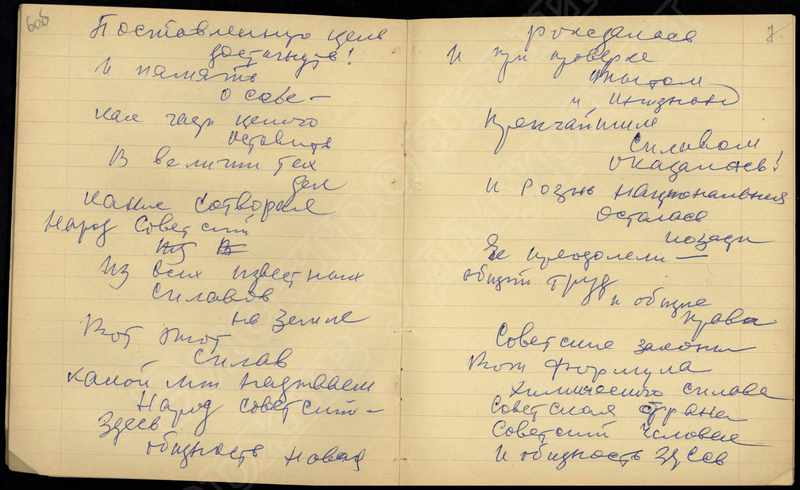 606
Поставленную цель
достигнув!
И память
о себе —
как часть целого
оставить
В величии тех
дел
какие сотворил
Народ Советский
Из всех известных
сплавов
на Земле
Вот этот
сплав
какой мы называем
Народ советский —
Здесь
общность новая
7
рождалась
И при проверке
опытом
и жизнью
Крепчайшим
сплавом
оказалась!
И рознь национальная
осталась
позади
Ее преодолели —
общий труд
и общие
права
Советские законы
Вот формула
химического сплава
Советская страна
Советский человек
И общность здесь